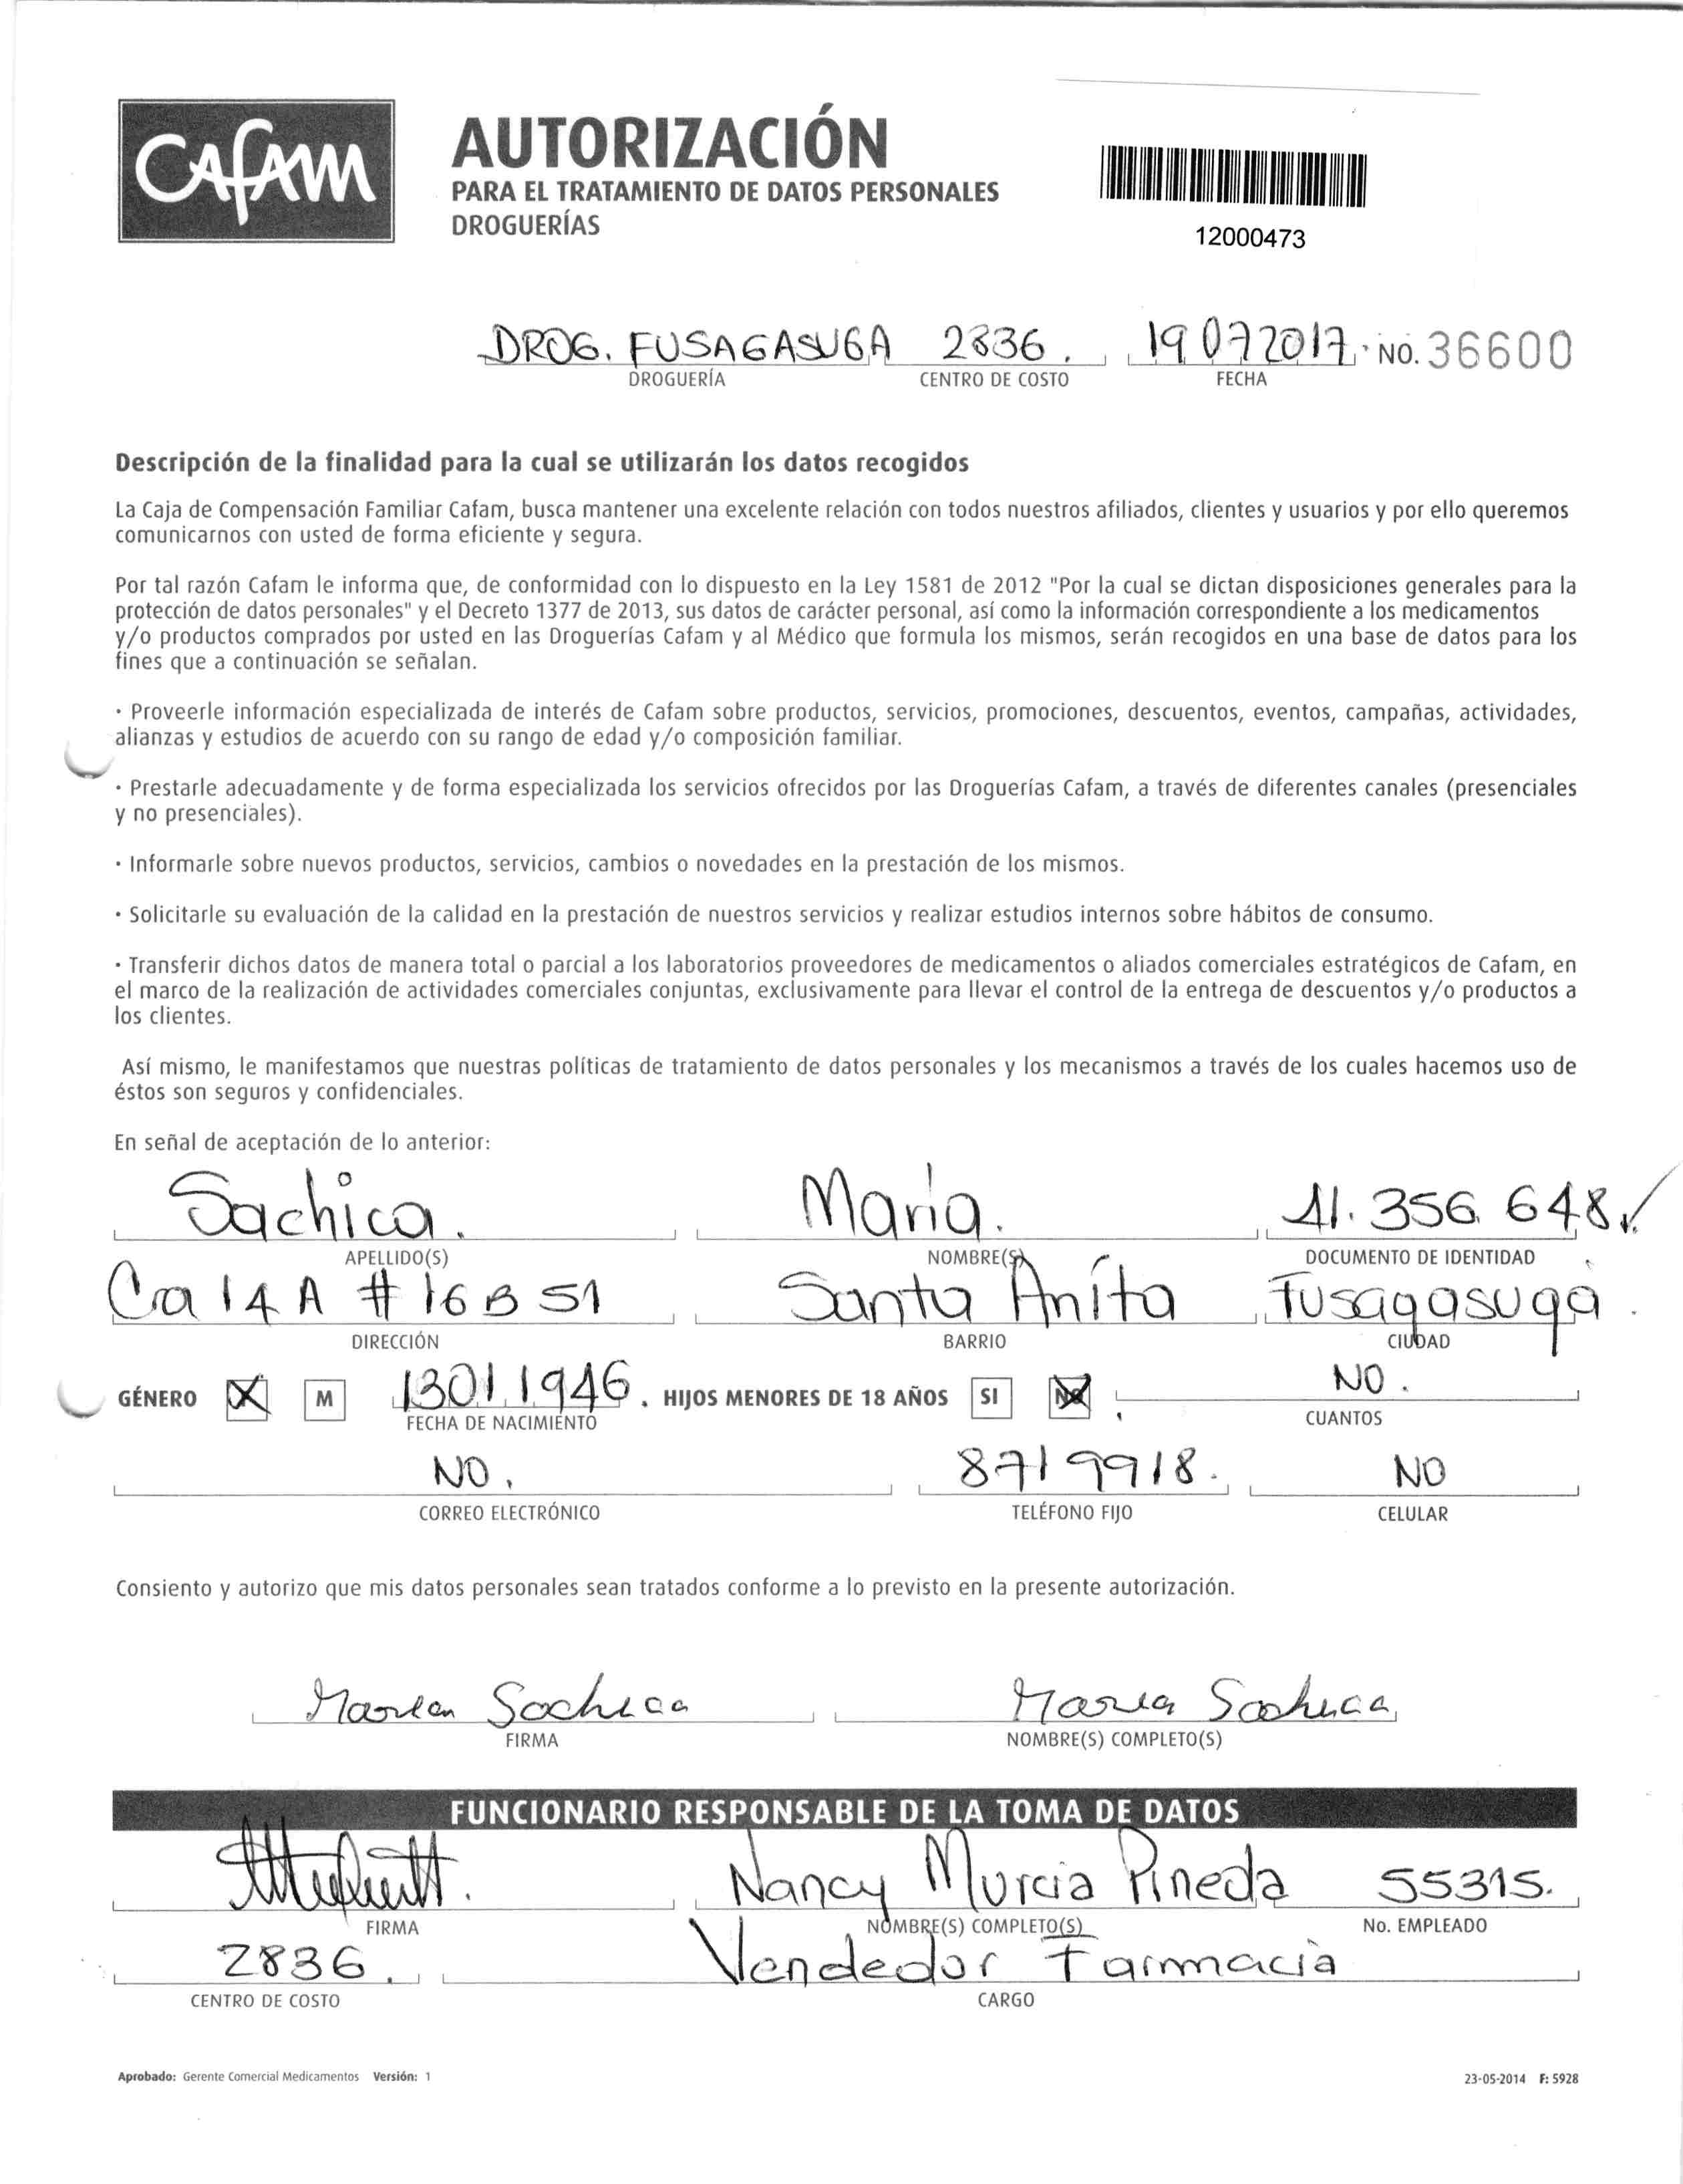 CAFAM
AUTORIZACIÓN
PARA EL TRATAMIENTO DE DATOS PERSONALES
DROGUERÍAS
12000473
DROG. FUSAGASUGA 2836. 19 07 2017. No. 36600
DROGUERÍA CENTRO DE COSTO FECHA
Descripción de la finalidad para la cual se utilizarán los datos recogidos
La Caja de Compensación Familiar Cafam, busca mantener una excelente relación con todos nuestros afiliados, clientes y usuarios y por ello queremos
comunicarnos con usted de forma eficiente y segura.
Por tal razón Cafam le informa que, de conformidad con lo dispuesto en la Ley 1581 de 2012 "Por la cual se dictan disposiciones generales para la
protección de datos personales" y el Decreto 1377 de 2013, sus datos de carácter personal, así como la información correspondiente a los medicamentos
y/o productos comprados por usted en las Droguerías Cafam y al Médico que formula los mismos, serán recogidos en una base de datos para los
fines que a continuación se señalan.
· Proveerle información especializada de interés de Cafam sobre productos, servicios, promociones, descuentos, eventos, campañas, actividades,
alianzas y estudios de acuerdo con su rango de edad y/o composición familiar.
· Prestarle adecuadamente y de forma especializada los servicios ofrecidos por las Droguerías Cafam, a través de diferentes canales (presenciales
y no presenciales).
· Informarle sobre nuevos productos, servicios, cambios o novedades en la prestación de los mismos.
· Solicitarle su evaluación de la calidad en la prestación de nuestros servicios y realizar estudios internos sobre hábitos de consumo.
· Transferir dichos datos de manera total o parcial a los laboratorios proveedores de medicamentos o aliados comerciales estratégicos de Cafam, en
el marco de la realización de actividades comerciales conjuntas, exclusivamente para llevar el control de la entrega de descuentos y/o productos a
los clientes.
Así mismo, le manifestamos que nuestras políticas de tratamiento de datos personales y los mecanismos a través de los cuales hacemos uso de
éstos son seguros y confidenciales.
En señal de aceptación de lo anterior:
Sachica. Maria. 41.356.648.
APELLIDO(S) NOMBRE(S) DOCUMENTO DE IDENTIDAD
Cra 14 A # 16 B 51 Santa Anita Fusagasuga.
DIRECCIÓN BARRIO CIUDAD
GÉNERO M 13011946. HIJOS MENORES DE 18 AÑOS SI NO NO.
FECHA DE NACIMIENTO CUANTOS
NO. 8719918. NO
CORREO ELECTRÓNICO TELÉFONO FIJO CELULAR
Consiento y autorizo que mis datos personales sean tratados conforme a lo previsto en la presente autorización.
Maria Sachica Maria Sachica
FIRMA NOMBRE(S) COMPLETO(S)
FUNCIONARIO RESPONSABLE DE LA TOMA DE DATOS
Nancy Murcia Pineda 55315.
FIRMA NOMBRE(S) COMPLETO(S) No. EMPLEADO
2836. Vendedor Farmacia
CENTRO DE COSTO CARGO
Aprobado: Gerente Comercial Medicamentos Versión: 1 23-05-2014 F: 5928